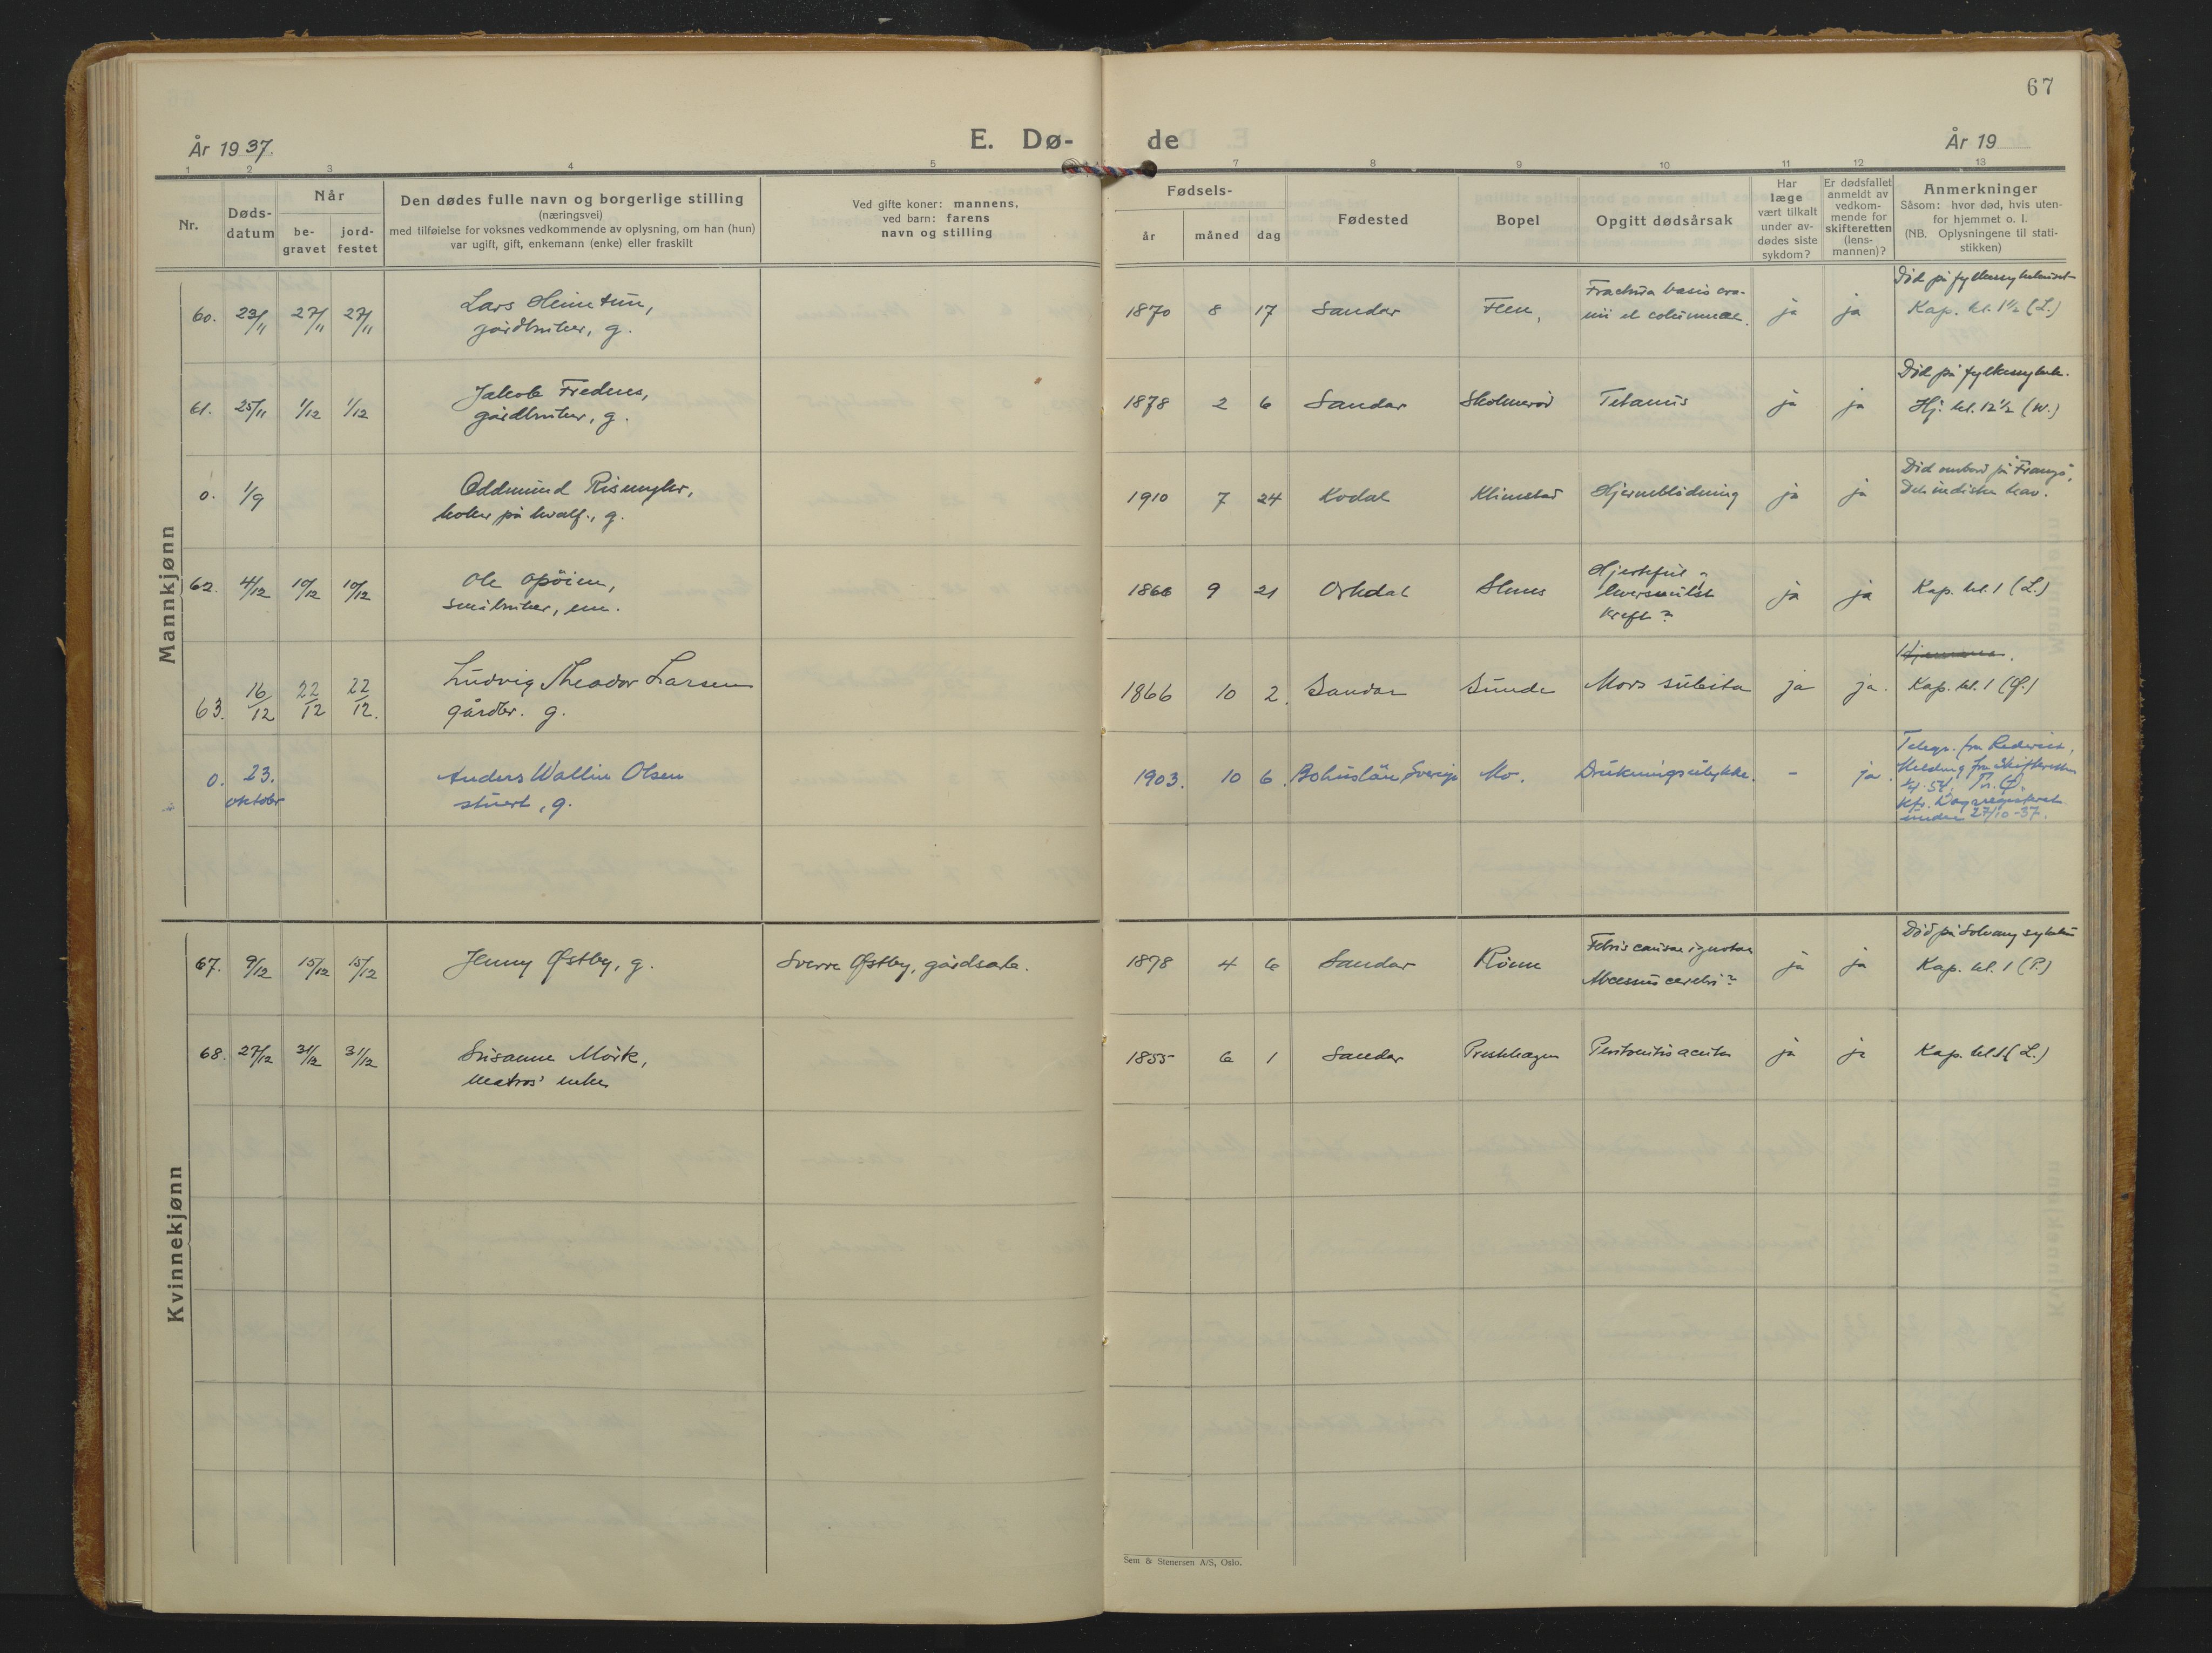 67
År 1937.
E. Dø-
de
År 19
1 2 3 4 5 7 8 9 10 11 12 13
Nr.
Døds-
datum
Når
be-
gravet
jord-
festet
Den dødes fulle navn og borgerlige stilling
(næringsvei)
med tilføielse for voksnes vedkommende av oplysning, om han (hun)
var ugift, gift, enkemann (enke) eller fraskilt
Ved gifte koner: mannens,
ved barn: farens
navn og stilling
Fødsels-
år
måned
dag
Fødested
Bopel
Opgitt dødsårsak
Har
læge
vært tilkalt
under av-
dødes siste
sykdom?
Er dødsfallet
anmeldt av
vedkom-
mende for
skifteretten
(lens-
mannen)?
Anmerkninger
Såsom: hvor død, hvis uten-
for hjemmet o. l.
(NB. Oplysningene til stati-
stikken)
Mannkjønn
60. 23/11 27/11 27/11
Lars Heimtun,
gårdbruker, g.
1870 8 17 Sandar Flen,
Fractura basis cra-
nii et columnae.
ja ja
Død på fylkessykehuset
Kap. kl. 1½ (L.)
61. 25/11 1/12 1/12
Jakob Frednes,
gårdbruker, g.
1878 2 6 Sandar Skolmerød Tetanus ja ja
Død på fylkessykeh.
Hj. kl. 12½ (W.)
0. 1/9
Oddmund Risungler,
koker på hvalf., g.
1910 7 24 Kodal Klimestad Hjerneblødning ja ja
Død ombord på "Frango",
Det indiske hav.
62. 4/12 10/12 10/12
Ole Opöien,
småbruker, em.
1866 9 21 Orkdal Slunes
Hjertefeil -
kreft?
ja ja
Kap. kl. 1 (L.)
63. 16/12 22/12 22/12.
Ludvig Theodor Larsen
gårdbr. g.
1866 10 2. Sandar Sunde Mors subita ja ja.
Kap. kl. 1 (Ø.)
0. 23.
oktober
Anders Wallin Olsen
stuert, g.
1903. 10 6. Bohuslän Sverige Mo. Drukningsulykke. - ja.
Telegr. fra Rederiet,
Melding fra Skifteretten
Kfr. Dagsregisteret
under 27/10-37.
Kvinnekjønn
67. 9/12 15/12 15/12
Jenny Østby, g.
Sverre Østby, gårdsarb.
1878 4 6 Sandar Rönn
Febris causae ignotae
Abcessus cerebri?
ja ja
Død på Solvang sykehus
Kap. kl. 1 (P.)
68. 27/12 31/12 31/12
Susanne Mörk,
matros' enke
1855 6 1 Sandar Presthagen Peritonitis acuta ja ja Kap. kl. 1 (L.)
Sem & Stenersen A/S, Oslo.